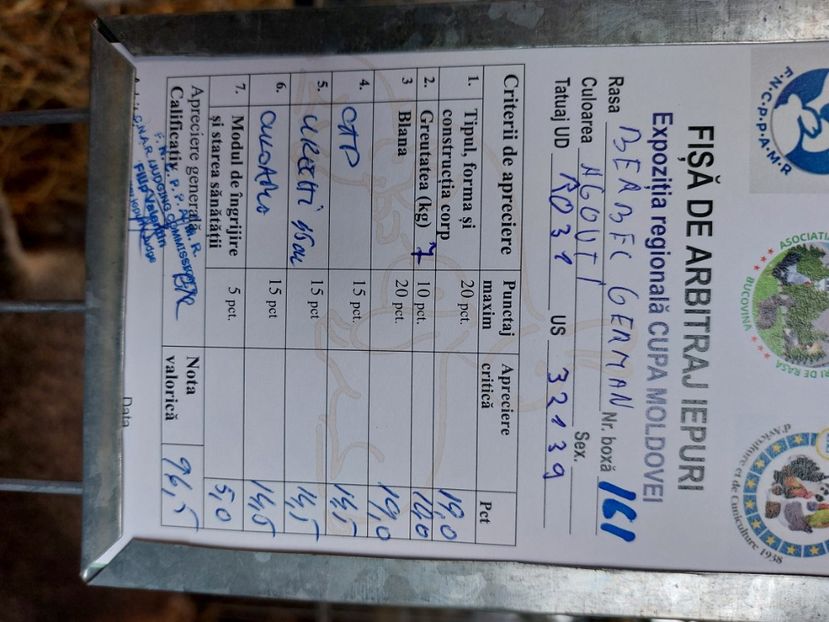 F·N·C·P·P·A·M·R
ASOCIATI
RI DE RASA
BUCOVINA
d'Aviculture et de Cuniculture 1938
FIȘĂ DE ARBITRAJ IEPURI
Expoziția regională CUPA MOLDOVEI
Rasa BERBEC GERMAN Nr. boxă 161
Culoarea AGOUTI Sex.
Tatuaj UD RO31 US 32139
Criterii de apreciere Punctaj maxim Apreciere critică Pct
1. Tipul, forma și construcția corp 20 pct. 19,0
2. Greutatea (kg) 7 10 pct. 10,0
3 Blana 20 pct. 19,0
4. CAP 15 pct. 14,5
5. URECHI 45cm 15 pct 14,5
6. CULOARE 15 pct. 14,5
7. Modul de îngrijire și starea sănătății 5 pct. 5,0
Apreciere generală,
Calificativ EX Nota valorică 96,5
F. N. C. P. P. A. M. R.
C.N.A.R. JUDGING COMMISSION
Filip Valentin
Judge
Data